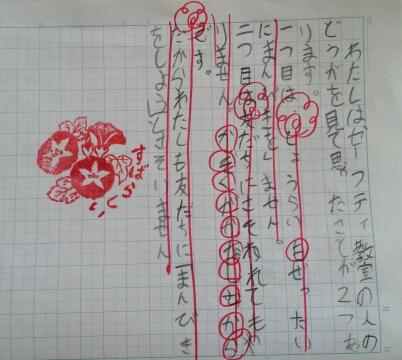 わたしはセーフティ教室の人の
どうがを見て思ったことが2つあ
ります。
一つ目はしょうらいもぜったい
にまんびきをしません。
二つ目は友だちにさそわれてもや
りません。かぞくがかなしむから
です。
だからわたしも友だちにまんびき
をしようとさそいません。
すばらしい